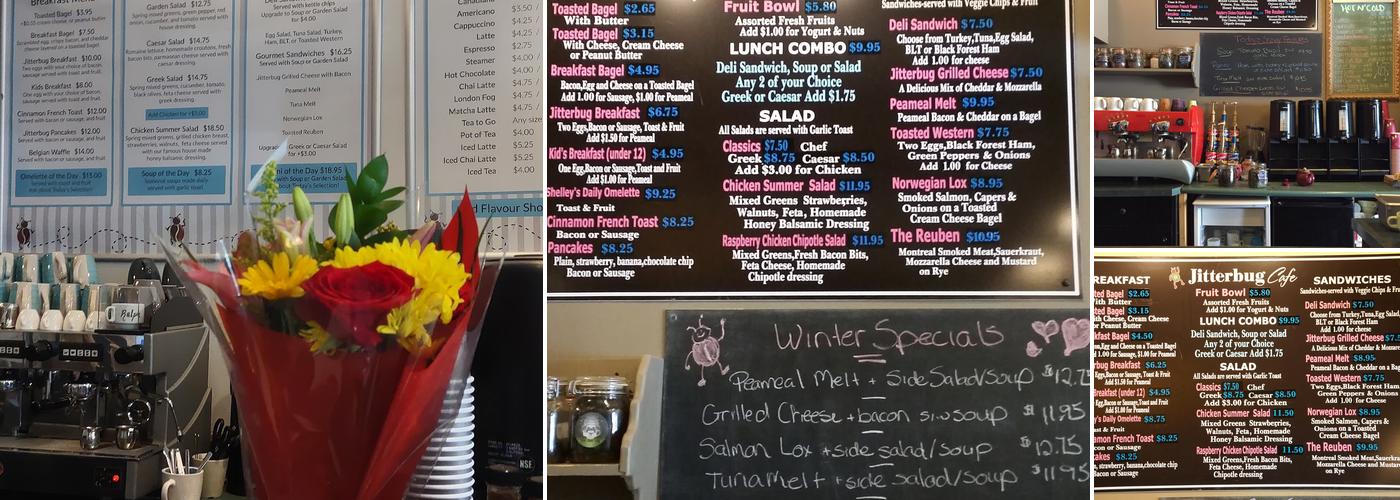 Toasted Bagel $3.95
+$0.55 cream cheese, or peanut butter
Breakfast Bagel $7.50
Jitterbug Breakfast $10.00
Two eggs with your choice of bacon,
sausage served with toast and fruit.
Kids Breakfast $8.00
One egg with your choice of bacon,
sausage, toast and fruit.
Cinnamon French Toast $12.00
Served with bacon or sausage, and fruit
Jitterbug Pancakes $12.00
Served with bacon or sausage, and fruit
Belgian Waffle $14.00
Served with bacon or sausage, and fruit
Omelette of the Day $15.00
Served with toast and fruit
Garden Salad $12.75
Spring mixed greens, green pepper, red
onion, cucumber, and tomato served with
dressing.
Caesar Salad $14.75
Romaine lettuce, homemade croutons, fresh
bacon bits, parmesan cheese served with
caesar dressing.
Greek Salad $14.75
Spring mixed greens, cucumber, tomato,
black olives, feta cheese served with
greek dressing.
Add Chicken for +$3.00
Chicken Summer Salad $18.50
Spring mixed greens, grilled chicken breast,
strawberries, walnuts, feta cheese served
with our famous house made
honey balsamic dressing.
Soup of the Day $8.25
Seasonal soups made
daily served with garlic toast!
Served with kettle chips
Upgrade to Soup or Garden Salad
for $4.00
Egg Salad, Tuna Salad, Turkey,
Ham, BLT, or Toasted Western
Gourmet Sandwiches $16.25
Served with Soup or Garden Salad
Jitterbug Grilled Cheese with Bacon
Peameal Melt
Tuna Melt
Norwegian Lox
Toasted Reuben
or Caesar Salad
for +$3.00
of the Day $18.95
with Soup or Garden Salad
about Today's Selection!
Canadiano $3.50 /
Americano $4.
Cappuccino $4.25 /
Latte $4.25 /
Espresso $2.75
Steamer $4.00 /
Hot Chocolate $4.00 /
Chai Latte $4.75 /
London Fog $4.75 /
Matcha Latte $4.75 /
Tea to Go Any size
Pot of Tea $4.00
Iced Latte $5.25
Iced Chai Latte $5.25
Iced Tea $4.00
d Flavour Sho
Ralph
NSF
Toasted Bagel $2.65
With Butter
Toasted Bagel $3.15
With Cheese, Cream Cheese
or Peanut Butter
Breakfast Bagel $4.95
Bacon,Egg and Cheese on a Toasted Bagel
Add 1.00 for Sausage, $1.00 for Peameal
Jitterbug Breakfast $6.75
Two Eggs,Bacon or Sausage, Toast & Fruit
Add $1.50 for Peameal
Kid's Breakfast (under 12) $4.95
One Egg,Bacon or Sausage,Toast and Fruit
Add $1.00 for Peameal
Shelley's Daily Omelette $9.25
Toast & Fruit
Cinnamon French Toast $8.25
Bacon or Sausage
Pancakes $8.25
Plain, strawberry, banana,chocolate chip
Bacon or Sausage
Fruit Bowl $5.80
Assorted Fresh Fruits
Add $1.00 for Yogurt & Nuts
LUNCH COMBO $9.95
Deli Sandwich, Soup or Salad
Any 2 of your Choice
Greek or Caesar Add $1.75
SALAD
All Salads are served with Garlic Toast
Classics $7.50 Chef
Greek $8.75 Caesar $8.50
Add $3.00 for Chicken
Chicken Summer Salad $11.95
Mixed Greens Strawberries,
Walnuts, Feta, Homemade
Honey Balsamic Dressing
Raspberry Chicken Chipotle Salad $11.95
Mixed Greens,Fresh Bacon Bits,
Feta Cheese, Homemade
Chipotle dressing
Sandwiches-served with Veggie Chips & Fruit
Deli Sandwich $7.50
Choose from Turkey,Tuna,Egg Salad,
BLT or Black Forest Ham
Add 1.00 for cheese
Jitterbug Grilled Cheese $7.50
A Delicious Mix of Cheddar & Mozzarella
Peameal Melt $9.95
Peameal Bacon & Cheddar on a Bagel
Toasted Western $7.75
Two Eggs,Black Forest Ham,
Green Peppers & Onions
Add 1.00 for Cheese
Norwegian Lox $8.95
Smoked Salmon, Capers &
Onions on a Toasted
Cream Cheese Bagel
The Reuben $10.95
Montreal Smoked Meat,Sauerkraut,
Mozzarella Cheese and Mustard
on Rye
Winter Specials
Peameal Melt + Side Salad/Soup $12.7
Grilled Cheese + bacon s/w soup $11.95
Salmon Lox + side salad/soup $12.75
Tuna Melt + side salad/soup $11.95
HOT N COLD
Jitterbug Cafe
BREAKFAST
ted Bagel $2.65
With Butter
ted Bagel $3.15
or Peanut Butter
kfast Bagel $4.50
rbug Breakfast $6.25
Add $1.50 for Peameal
Breakfast (under 12) $4.95
y's Daily Omelette $8.75
amon French Toast $8.25
Bacon or Sausage
cakes $8.25
n, strawberry, banana,chocolate chip
Bacon or Sausage
Fruit Bowl $5.80
Assorted Fresh Fruits
Add $1.00 for Yogurt & Nuts
LUNCH COMBO $9.95
Deli Sandwich, Soup or Salad
Any 2 of your Choice
Greek or Caesar Add $1.75
SALAD
All Salads are served with Garlic Toast
Classics $7.50 Chef
Greek $8.75 Caesar $8.50
Add $3.00 for Chicken
Chicken Summer Salad 11.50
Mixed Greens Strawberries,
Walnuts, Feta, Homemade
Honey Balsamic Dressing
Raspberry Chicken Chipotle Salad 11.50
Mixed Greens,Fresh Bacon Bits,
Feta Cheese, Homemade
Chipotle dressing
SANDWICHES
Sandwiches-served with Veggie Chips & Fru
Deli Sandwich $7.50
Choose from Turkey,Tuna,Egg Salad,
BLT or Black Forest Ham
Add 1.00 for cheese
Jitterbug Grilled Cheese $7.5
A Delicious Mix of Cheddar & Mozzare
Peameal Melt $8.95
Peameal Bacon & Cheddar on a Bag
Toasted Western $7.75
Two Eggs,Black Forest Ham
Green Peppers & Onions
Add 1.00 for Cheese
Norwegian Lox $8.95
Smoked Salmon, Capers &
Onions on a Toasted
Cream Cheese Bagel
The Reuben $9.95
Montreal Smoked Meat,Sauerkrau
Mozzarella Cheese and Must
on Rye